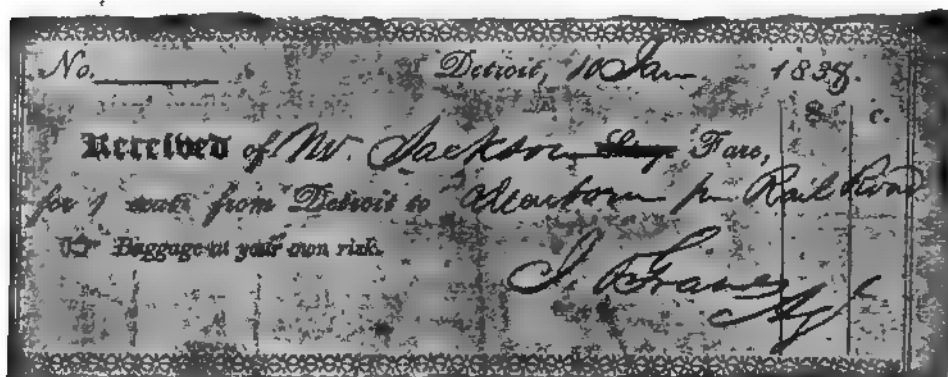 No. Detroit, 10 Jan 1838.
$ c.
Received of Mr. Jackson Stage Fare,
for 1 seat from Detroit to Dearborn pr Rail Road
Baggage at your own risk.
Agt